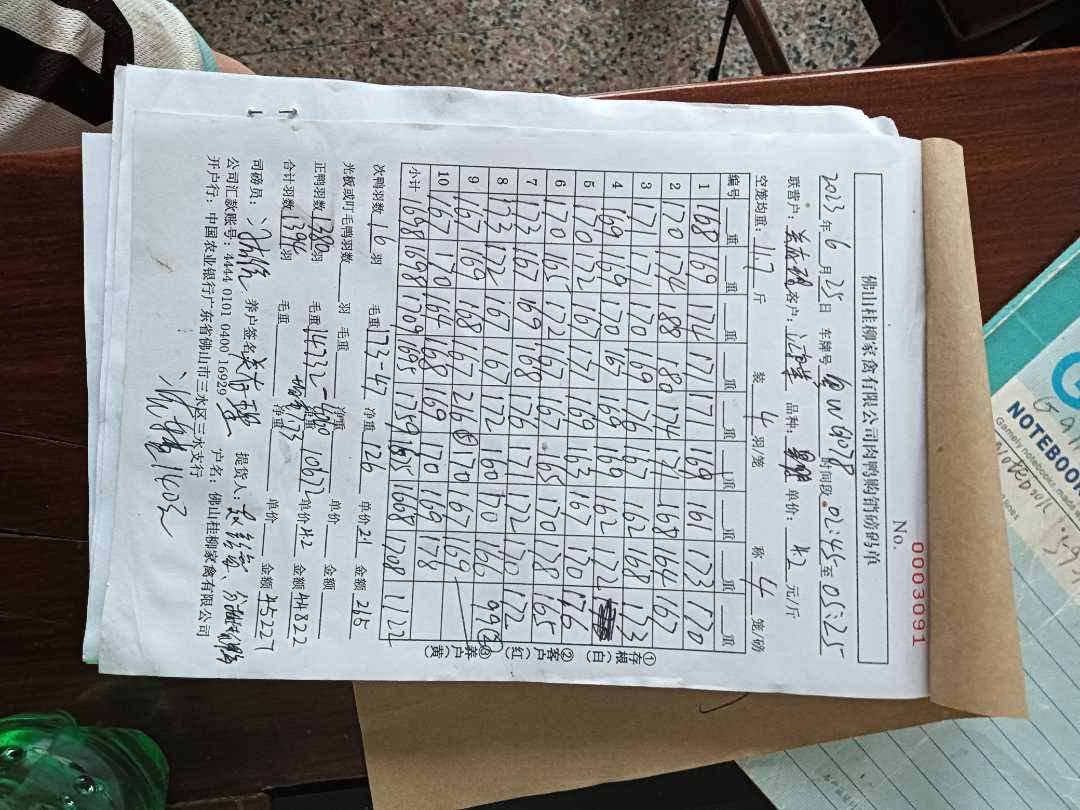 佛山桂柳家禽有限公司肉鸭购销磅码单
No. 0003091
2023年6月25日 车牌号 时间段:02:45至05:25
联营户: 客户: 品种: 单价:4.2元/斤
空笼均重:11.7斤 装4羽/笼 称4笼/磅
编号 重 重 重 重 重 重 重 重 重
1 168 169 174 171 171 169 161 173 170
2 170 174 188 180 174 171 168 164 167
3 171 171 170 169 176 167 162 168 173
4 169 169 170 167 169 169 162 172
5 170 172 167 171 169 163 167 170 176
6 170 165 172 167 167 165 170 178 165
7 173 167 169 168 176 171 172 170 172
8 173 172 167 167 172 160 170 166 99②
9 167 169 168 167 216⑤ 170 167 169
10 167 170 164 168 169 170 169 178
小计 1698 1698 1709 1695 1759 1685 1668 1708 1122
①存根(白)
②客户(红)
③养户(黄)
次鸭羽数16羽 毛重173-47 净重126 单价2.1 金额265
光板或叮毛鸭羽数 羽 毛重 净重 单价 金额
正鸭羽数1380羽 毛重14732-4060 净重10672 单价4.2 金额44822
合计羽数1394羽 毛重 净重 单价 金额45227
司磅员: 养户签名: 提货人:
公司汇款账号:4444 0101 0400 16929 户名:佛山桂柳家禽有限公司
开户行:中国农业银行广东省佛山市三水区三水支行
NOTEBOOK
Gamely notebooks made